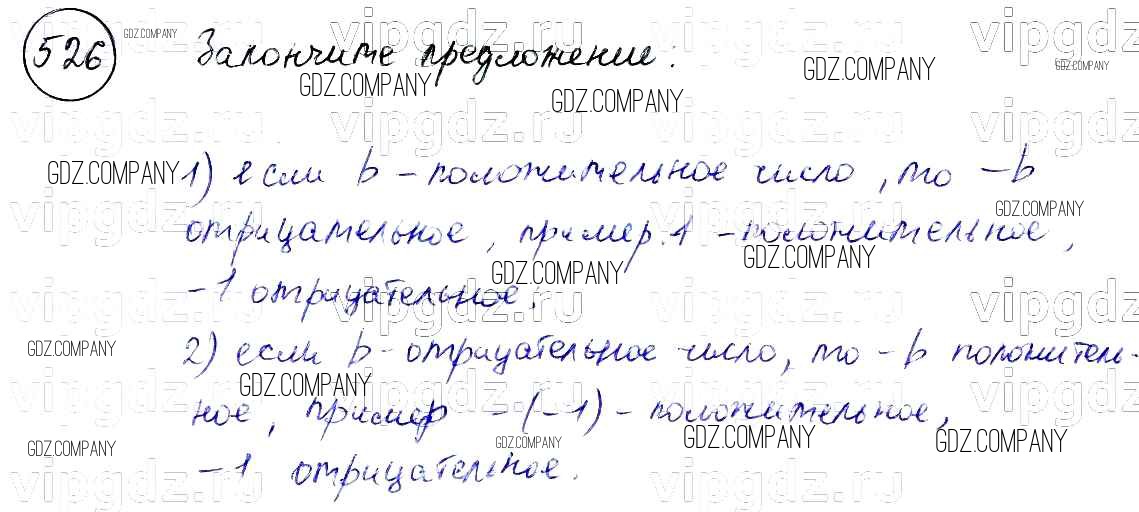 526 Закончите предложение:
1) если b - положительное число, то -b
отрицательное, пример: 1 - положительное,
-1 отрицательное;
2) если b - отрицательное число, то -b положитель-
ное, пример -(-1) - положительное,
-1 отрицательное.
GDZ.COMPANY
vipgdz.ru